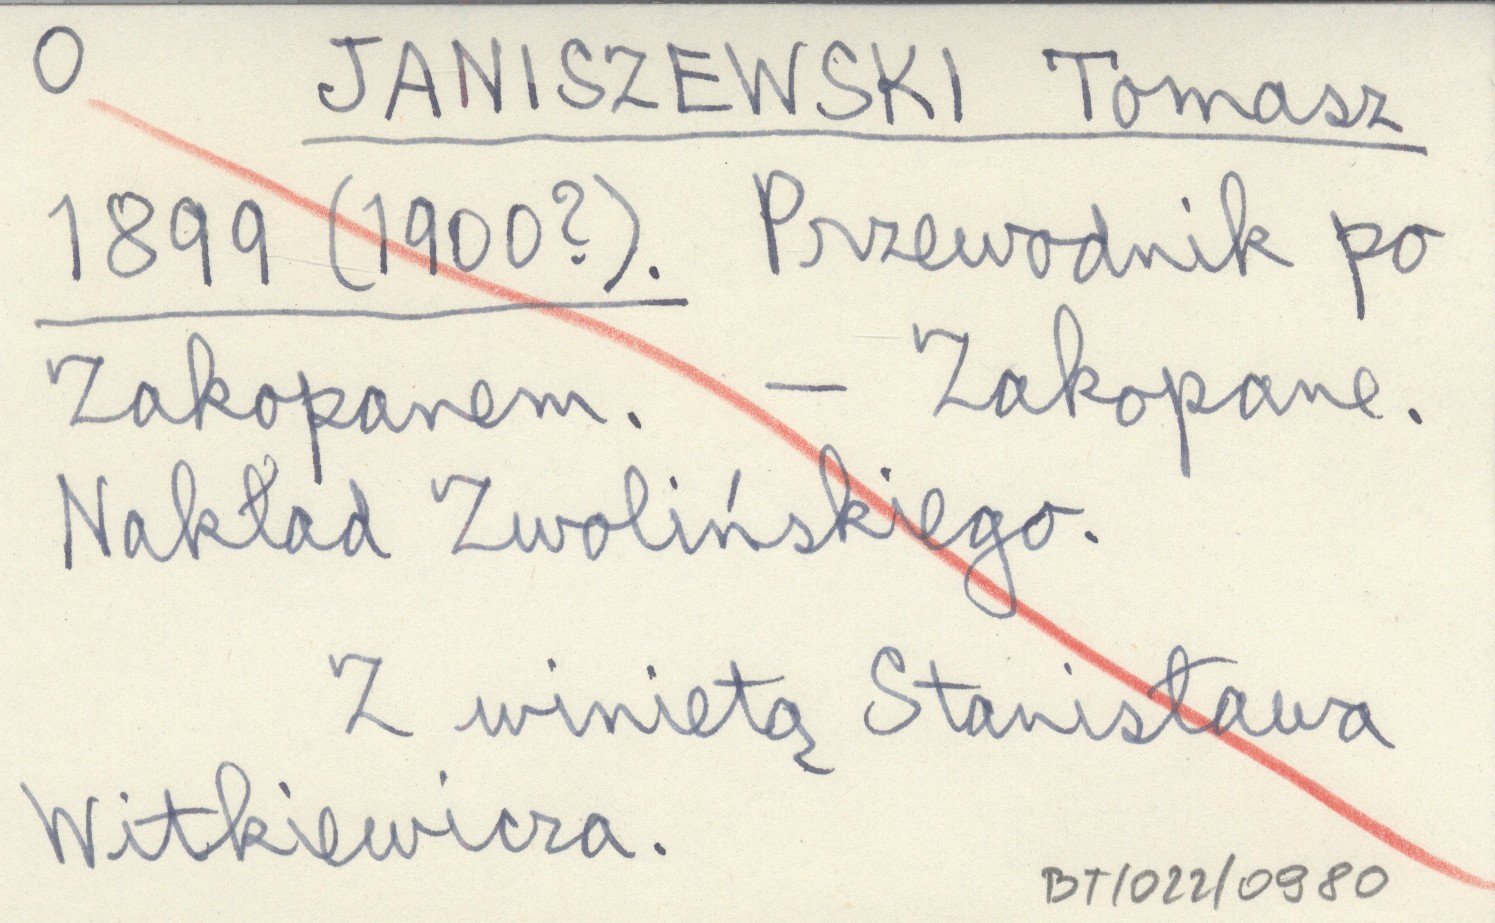 O JANISZEWSKI Tomasz
1899 (1900?). Przewodnik po
Zakopanem. — Zakopane.
Nakład Zwolińskiego.
Z winietą Stanisława
Witkiewicza.
BT/022/0980